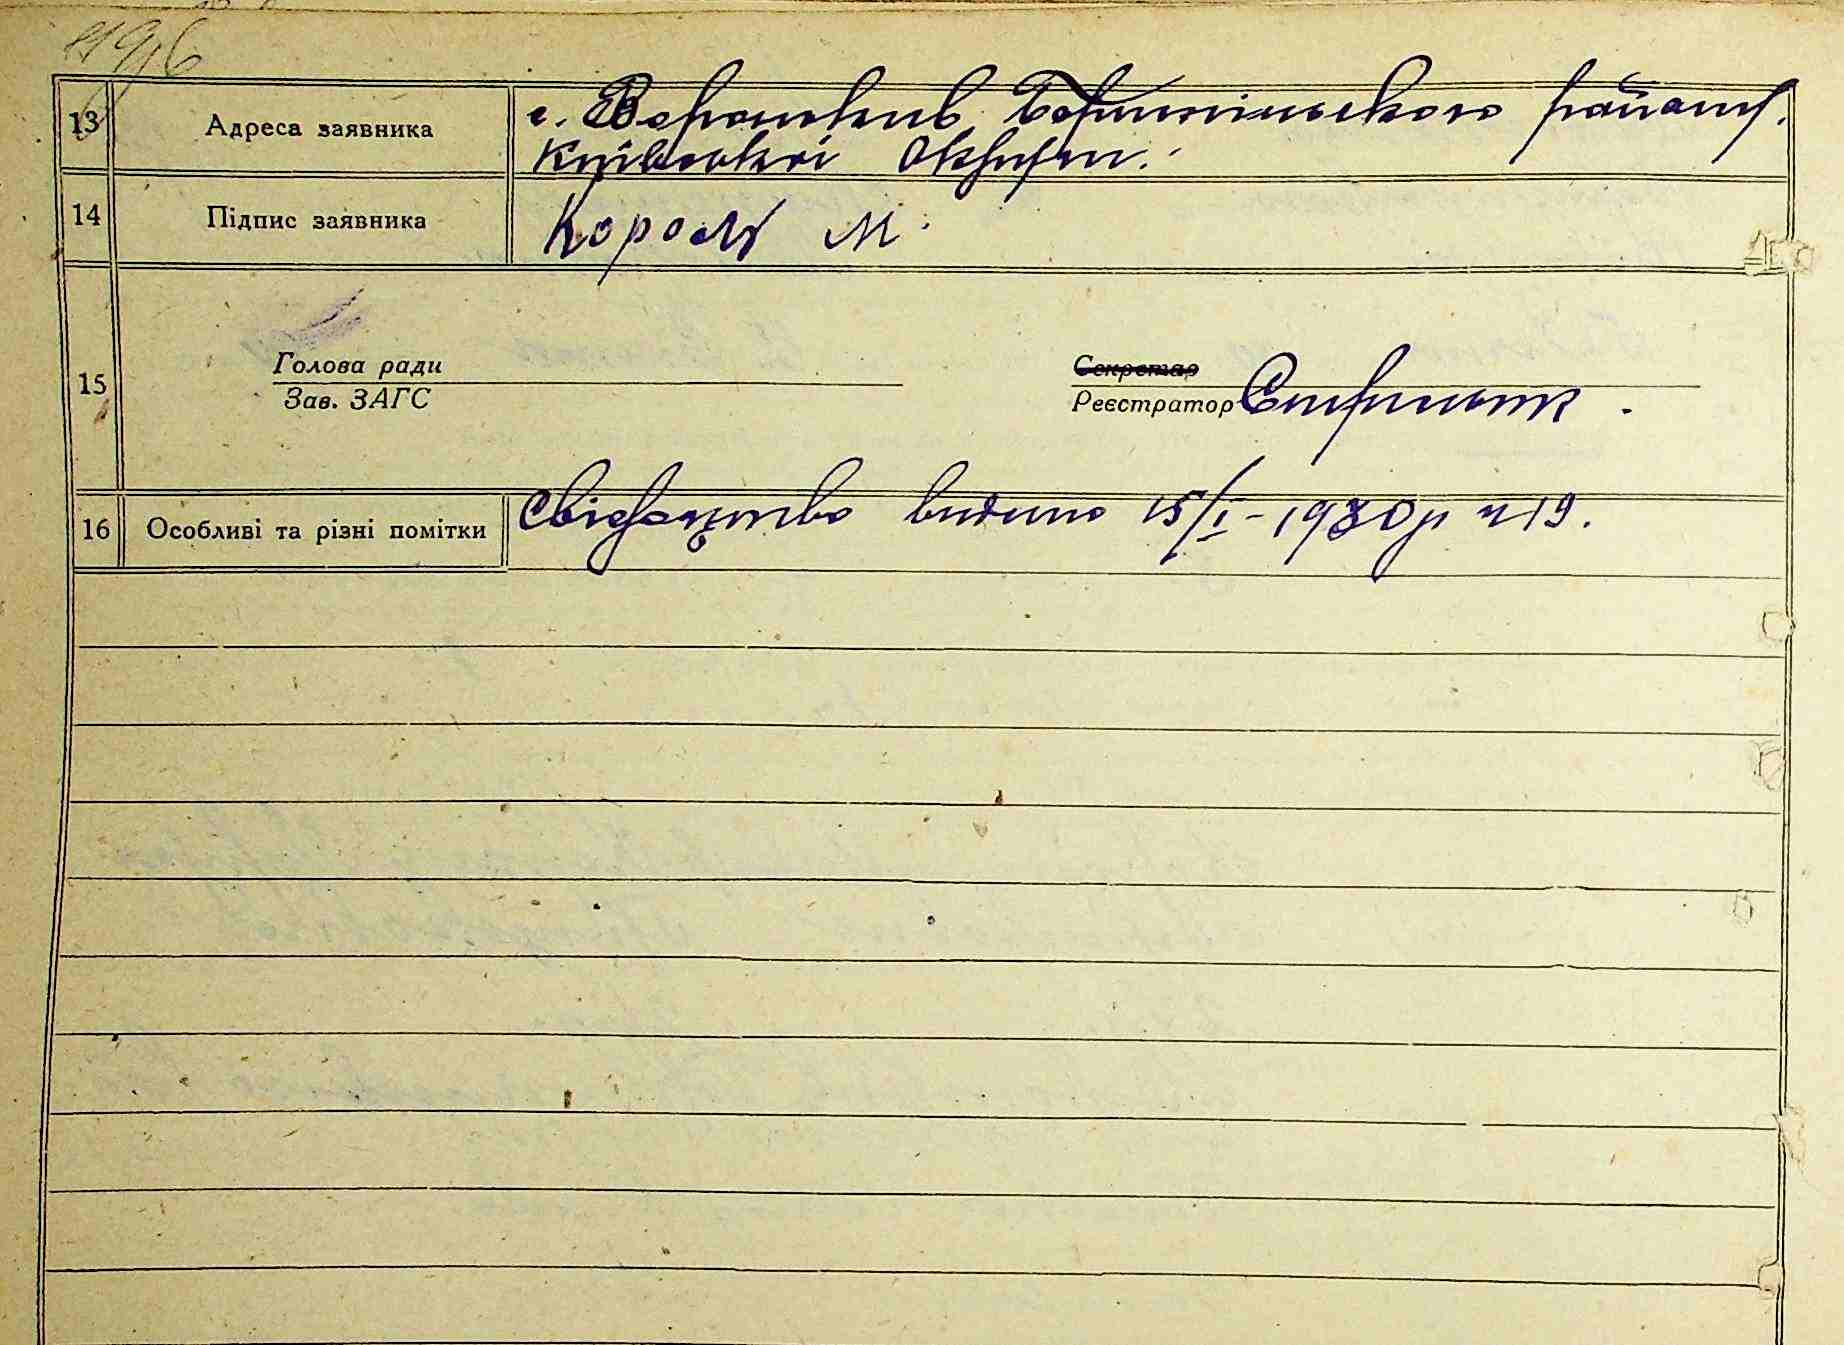 13 Адреса заявника с. Вороньків Бориспільського району.
Київської Округи.
14 Підпис заявника Король М.
15 Голова ради Секретар
Зав. ЗАГС Реєстратор
16 Особливі та різні помітки Свідоцтво видано 15/I-1930р ч 19.